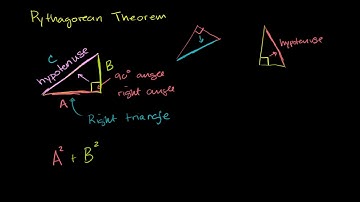 Pythagorean Theorem
C
hypotenuse
B
A
90° angle
right angle
Right triangle
hypotenuse
A² + B²